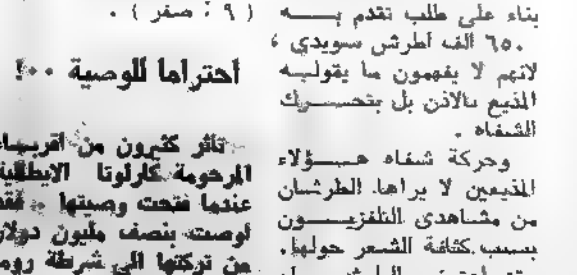 بناء على طلب تقدم بـــه
٦٥٠ الف اطرش سويدي ،
لانهم لا يفهمون ما يقولـه
المذيع بالاذن بل بتحســـرك
الشفاه .
وحركة شفاه هـــؤلاء
المذيعين لا يراها الطرشان
من مشاهدى التلفزيـــون
بسبب كثافة الشعر حولها.
( ٩ : صفر ) .
احتراما للوصية ٠٠!
تأثر كثيرون من اقربـاء
المرحومة كارلوتا الايطالية
عندما فتحت وصيتها . فقد
اوصت بنصف مليون دولار
من تركتها الى شرطة روما